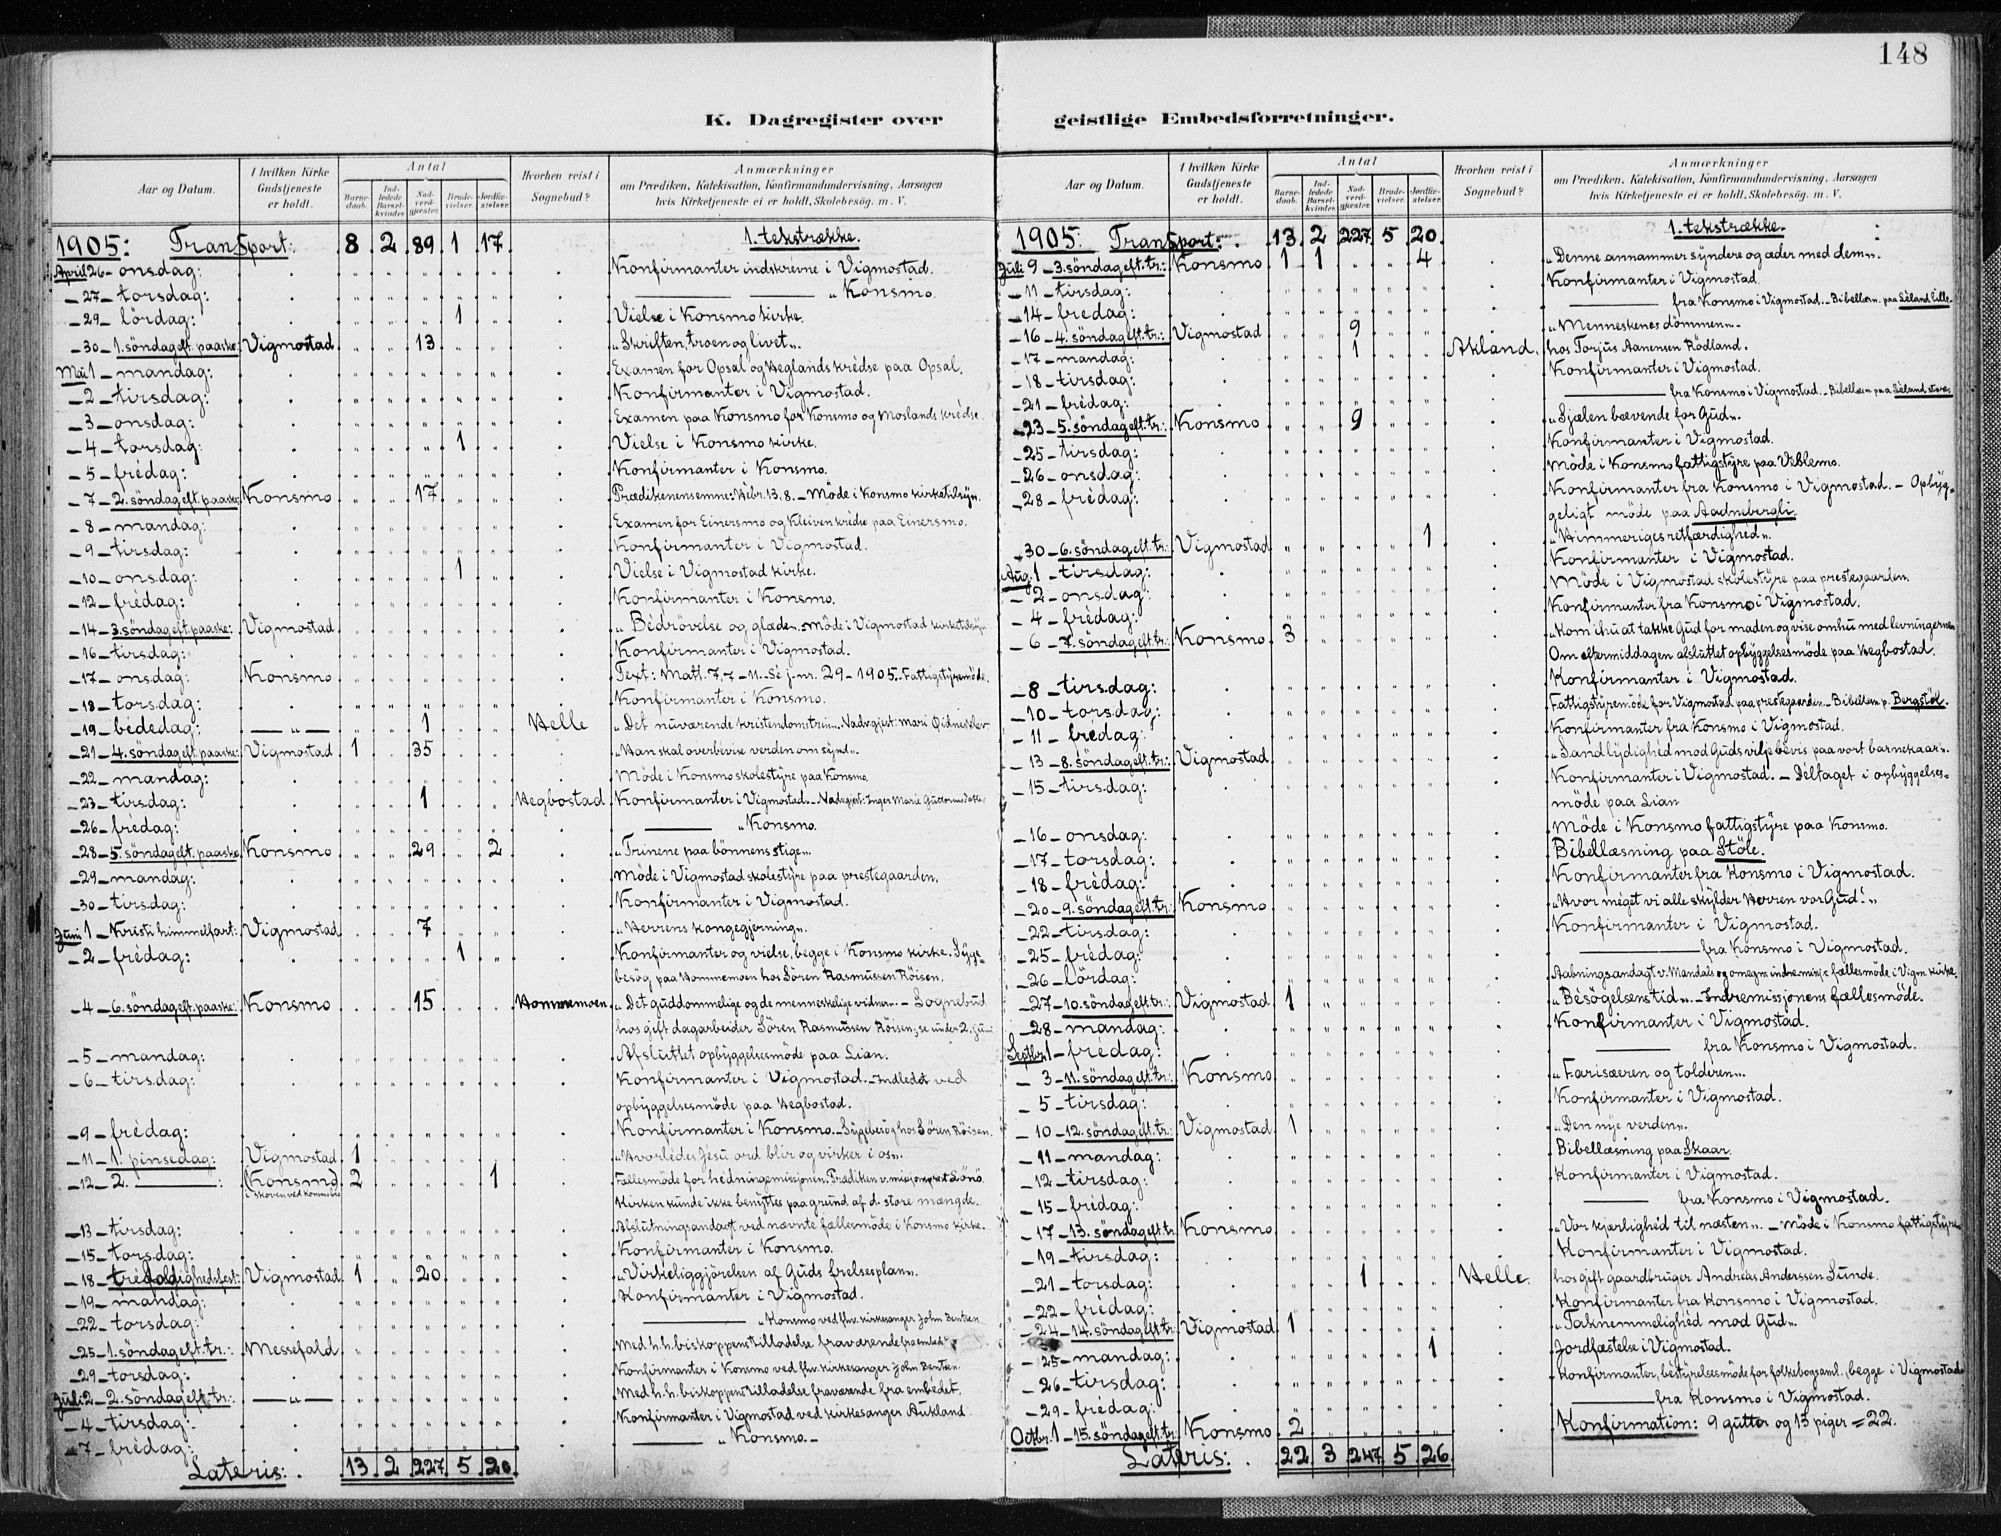 148
K. Dagregister over geistlige Embedsforretninger.
Aar og Datum.
I hvilken Kirke Gudstjeneste er holdt.
Antal
Barnedaab.
Indledede Barselkvinder.
Nadverdgjester.
Brudevielser.
Jordfæstelser.
Hvorhen reist i Sognebud?
Anmærkninger
om Prædiken, Katekisation, Konfirmandundervisning, Aarsagen hvis Kirketjeneste ei er holdt, Skolebesøg. m. V.
1905: Transport: 8 2 89 1 17 1. tekstrække.
April 26 - onsdag: Konfirmanter indskrevne i Vigmostad.
- 27 - torsdag: " Konsmo.
- 29 - lördag: 1 Vielse i Konsmo kirke.
- 30 - 1. söndag eft. paaske: Vigmostad 13 "Skriften, troen og livet".
Mai 1 - mandag: Examen for Opsal og Heglands krédse paa Opsal.
- 2 - tirsdag: Konfirmanter i Vigmostad.
- 3 - onsdag: Examen paa Konsmo for Konsmo og Moslands krédse.
- 4 - torsdag: 1 Vielse i Konsmo kirke.
- 5 - frédag: Konfirmanter i Konsmo.
- 7 - 2. söndag eft. paaske: Konsmo 17 Prædikenens emne: Hébr. 13, 8. - Möde i Konsmo kirketilsyn.
- 8 - mandag: Examen for Einersmo og Kleiven krédse paa Einersmo.
- 9 - tirsdag: Konfirmanter i Vigmostad.
- 10 - onsdag: 1 Vielse i Vigmostad kirke.
- 12 - frédag: Konfirmanter i Konsmo.
- 14 - 3. söndag eft. paaske: Vigmostad "Bédrövelse og glæde". Möde i Vigmostad kirketilsyn
- 16 - tirsdag: Konfirmanter i Vigmostad.
- 17 - onsdag: Konsmo Text: Matt. 7, 7-11. Sé j-nr. 29 - 1905. Fattigstyremöde.
- 18 - torsdag: Konfirmanter i Konsmo.
- 19 - bededag: - " - 1 Helle "Det nuværende kristendomstrin". Nadvgjest: Mari
- 21 - 4. söndag eft. paaske: Vigmostad 1 35 "Han skal overbevise verden om synd".
- 22 - mandag: Möde i Konsmo skolestyre paa Konsmo.
- 23 - tirsdag: 1 Hegbostad Konfirmanter i Vigmostad. - Nadvgjest: Inger Marie
- 26 - frédag: " Konsmo.
- 28 - 5. söndag eft. paaske Konsmo 29 2 "Trinene paa bönnens stige".
- 29 - mandag: Möde i Vigmostad skolestyre paa prestegaarden.
- 30 - tirsdag: Konfirmanter i Vigmostad.
Juni 1 - Kristi himmelfart: Vigmostad 7 "Herrens kongegjerning".
- 2 - frédag: 1 Konfirmanter og vielse, begge i Konsmo kirke. Syge-
besög paa Hommemoen hos Sören Rasmussen Röisen.
- 4 - 6. söndag eft. paaske: Konsmo 15 Hommemoen "Det guddommelige og de menneskelige vidner". - Sognebud
hos gift dagarbeider Sören Rasmussen Röisen, se under 2. juni
- 5 - mandag: Afsluttet opbyggelsesmöde paa Lian.
- 6 - tirsdag: Konfirmanter i Vigmostad. - Indledet ved
opbyggelsesmöde paa Hegbostad.
- 9 - frédag: Konfirmanter i Konsmo. - Sygebesög hos Sören Röisen.
- 11 - 1. pinsedag: Vigmostad 1 "Hvorledes Jésu ord blir og virker i os".
- 12 - 2. - : (Konsmo) i skoven ved 2 1 Fællesmöde for hedningemissionen. Prædiken v. missionsprest Lönö.
Kirken kunde ikke benyttes paa grund af d. store mængde.
- 13 - tirsdag: Afslutningsandagt ved nævnte fællesmöde i Konsmo kirke.
- 15 - torsdag: Konfirmanter i Konsmo.
- 18 - tréfoldighedsfest: Vigmostad 1 20 "Virkeliggjörelsen af Guds frelsesplan".
- 19 - mandag: Konfirmanter i Vigmostad.
- 22 - torsdag: " Konsmo ved fhv. kirkesanger John Bentsen
- 25 - 1. söndag eft. tr.: Messefald Med h. h. biskoppens tilladelse fraværende fra embedet
- 29 - torsdag: Konfirmanter i Konsmo ved fhv. kirkesanger John Bentsen.
Juli 2 - 2. söndag eft. tr.: - " - Med h. h. biskoppens tilladelse fraværende fra embedet.
- 4 - tirsdag: Konfirmanter i Vigmostad ved kirkesanger Aukland.
- 7 - frédag: " Konsmo. -
Lateris: 13 2 227 5 20
Aar og Datum.
I hvilken Kirke Gudstjeneste er holdt.
Antal
Barnedaab.
Indledede Barselkvinder.
Nadverdgjester.
Brudevielser.
Jordfæstelser.
Hvorhen reist i Sognebud?
Anmærkninger
om Prædiken, Katekisation, Konfirmandundervisning, Aarsagen hvis Kirketjeneste ei er holdt, Skolebesøg. m. V.
1905: Transport: 13 2 227 5 20 1. tekstrække.
Juli 9 - 3. söndag eft. tr.: Konsmo 1 1 4 "Denne annammer syndere og æder med dem".
- 11 - tirsdag: Konfirmanter i Vigmostad.
- 14 - fredag: fra Konsmo i Vigmostad. - Bibellæsn. paa Séland lille.
- 16 - 4. söndag eft. tr.: Vigmostad 9 "Menneskenes dömmen".
- 17 - mandag: 1 Akland. hos Torjus Aanensen Rödland.
- 18 - tirsdag: Konfirmanter i Vigmostad.
- 21 - frédag: fra Konsmo i Vigmostad. - Bibellæsn paa Séland store.
- 23 - 5. söndag eft. tr.: Konsmo 9 "Sjælen bævende for Gud".
- 25 - tirsdag: Konfirmanter i Vigmostad.
- 26 - onsdag: Möde i Konsmo fattigstyre paa Viblemo.
- 28 - frédag: Konfirmanter fra Konsmo i Vigmostad. - Opbyg-
geligt möde paa Aadnebergli.
- 30 - 6. söndag eft. tr.: Vigmostad 1 "Himmeriges retfærdighéd".
Aug. 1 - tirsdag: Konfirmanter i Vigmostad.
- 2 - onsdag: Möde i Vigmostad skolestyre paa prestegaarden.
- 4 - frédag: Konfirmanter fra Konsmo i Vigmostad.
- 6 - 7. söndag eft. tr.: Konsmo 3 "Kom ihu at takke Gud for maden og vise omhu med levningerne"
Om eftermiddagen afsluttet opbyggelsesmöde paa Hegbostad.
- 8 - tirsdag: Konfirmanter i Vigmostad.
- 10 - torsdag: Fattigstyremöde for Vigmostad paa prestegaarden. - Bibellæsn p. Bergstöl.
- 11 - frédag: Konfirmanter fra Konsmo i Vigmostad.
- 13 - 8. söndag eft. tr.: Vigmostad "Sand lydighéd mod Guds vilje bévis paa vort barnekaar".
- 15 - tirsdag: Konfirmanter i Vigmostad. - Déltaget i opbyggelses-
möde paa Lian
- 16 - onsdag: Möde i Konsmo fattigstyre paa Konsmo.
- 17 - torsdag: Bibellæsning paa Stöle.
- 18 - frédag: Konfirmanter fra Konsmo i Vigmostad.
- 20 - 9. söndag eft. tr.: Konsmo "Hvor méget vi alle skylder Herren vor Gud!"
- 22 - tirsdag: Konfirmanter i Vigmostad.
- 25 - frédag: fra Konsmo i Vigmostad.
- 26 - lördag: Aabningsandagt v. Mandals og omegns indremiss.s fællesmöde i Vigm. kirke.
- 27 - 10. söndag eft. tr.: Vigmostad 1 "Bésögelsens tid". - Indremissjonens fællesmöde.
- 28 - mandag: Konfirmanter i Vigmostad.
Septbr. 1 - frédag: fra Konsmo i Vigmostad.
- 3 - 11. söndag eft. tr.: Konsmo "Farisæeren og tolderen".
- 5 - tirsdag: Konfirmanter i Vigmostad.
- 10 - 12. söndag eft. tr.: Vigmostad 1 "Den nye verden".
- 11 - mandag: Bibellæsning paa Skaar.
- 12 - tirsdag: Konfirmanter i Vigmostad.
- 15 - frédag: fra Konsmo i Vigmostad.
- 17 - 13. söndag eft. tr. Konsmo "Vor kjærlighéd til næsten". - Möde i Konsmo fattigstyre
- 19 - tirsdag: Konfirmanter i Vigmostad.
- 21 - torsdag: 1 Helle. hos gift gaardbruger Andreas Anderssen Sunde.
- 22 - frédag: Konfirmanter fra Konsmo i Vigmostad.
- 24 - 14. söndag eft. tr: Vigmostad 1 "Taknemmelighéd mod Gud".
- 25 - mandag: 1 Jordfæstelse i Vigmostad.
- 26 - tirsdag: Konfirmanter, bestyrelsesmöde for folkebogsaml. begge i Vigmostad
- 29 - frédag: fra Konsmo i Vigmostad.
Octbr. 1 - 15. söndag eft. tr. Konsmo 2 Konfirmation: 9 gutter og 13 piger = 22.
Lateris: 22 3 247 5 26